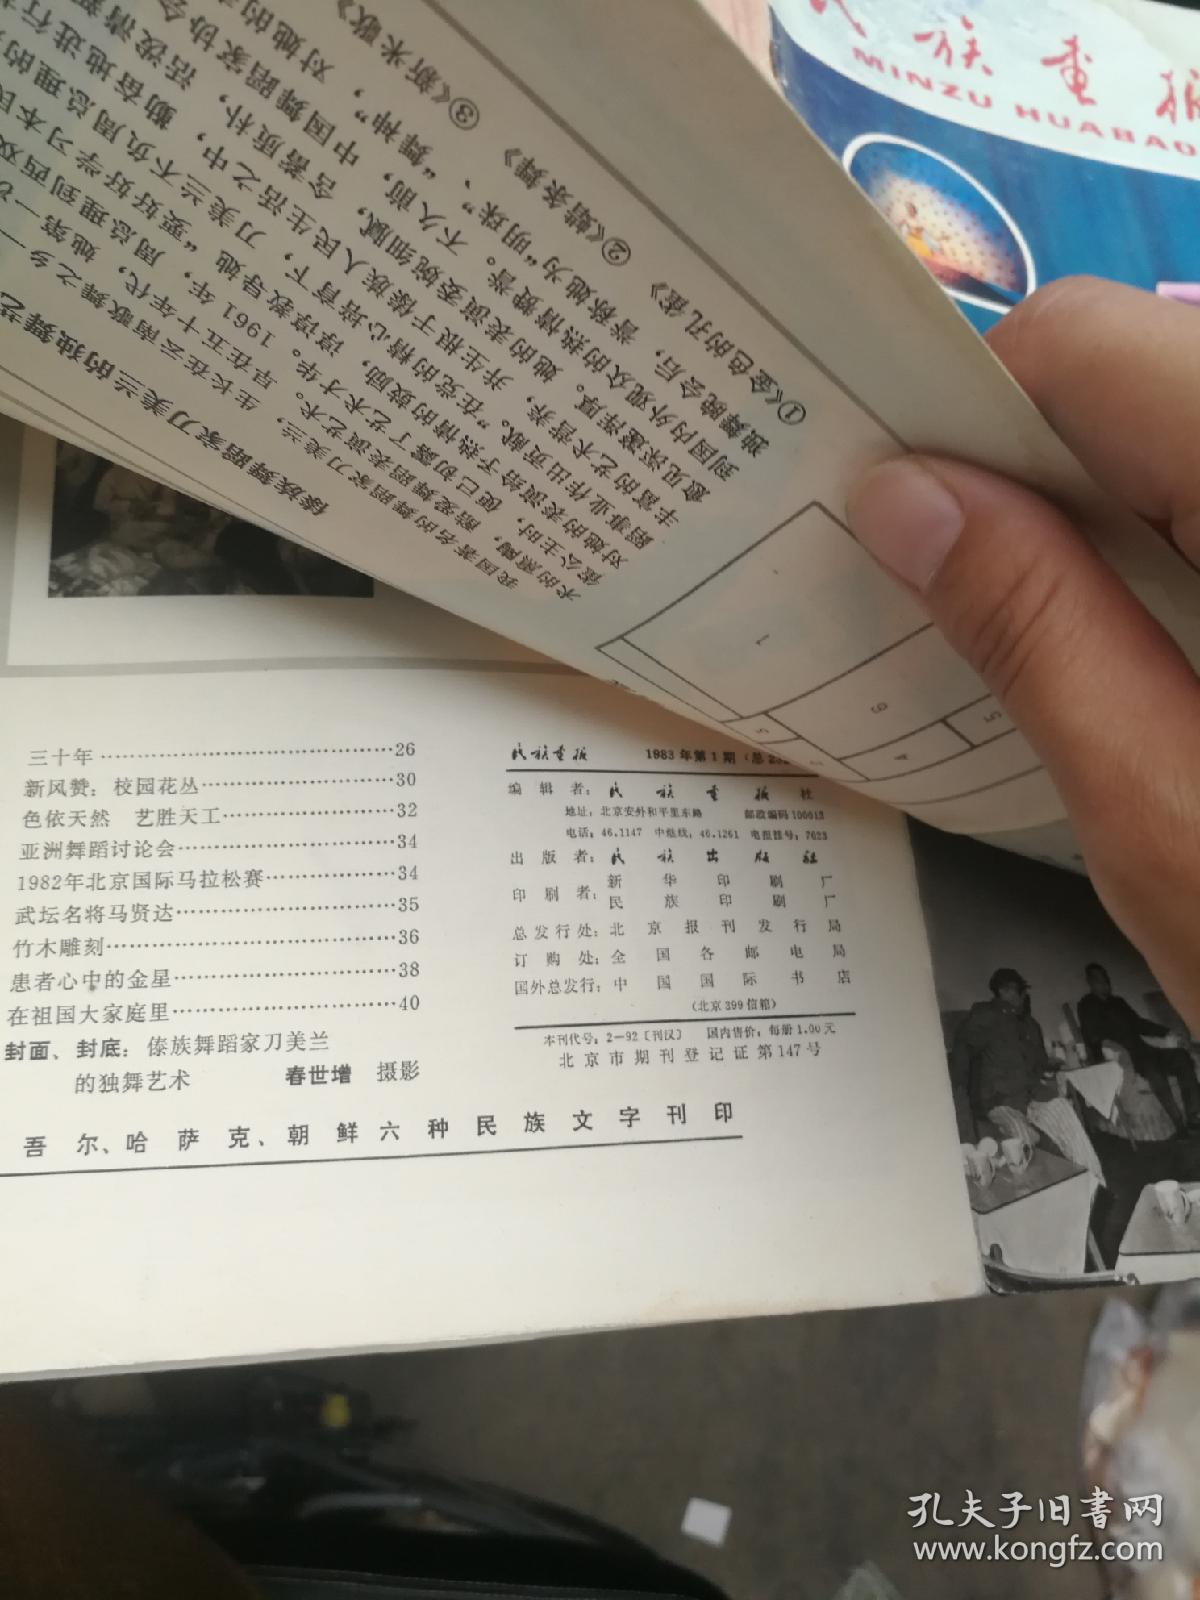 民族画报
MINZU HUABAO
傣族舞蹈家刀美兰的独舞艺
我国著名的舞蹈家刀美兰，生长在云南歌舞之乡
术的熏陶，酷爱舞蹈表演艺术。早在五十年代，她第一
雀公主时，便已初露了艺术才华。1961年，周总理到西双
对她的表演给予热情的鼓励，谆谆教导她“要好好学习本民
蹈事业作出贡献。”在党的精心培育下，刀美兰不负周总理的
丰富的艺术营养，并生根于傣族人民生活之中，勤奋地进行
愈见深邃浑厚。她的表演委婉细腻，含蓄质朴，活泼清
到国内外观众的热情赞誉。不久前，中国舞蹈家协会
独舞晚会后，誉称她为“明珠”、“舞神”，对她的
①《金色的孔雀》
②《蜡条舞》
③《新米歌》
三十年…………26
新风赞：校园花丛…………30
色依天然 艺胜天工…………32
亚洲舞蹈讨论会…………34
1982年北京国际马拉松赛…………34
武坛名将马贤达…………35
竹木雕刻…………36
患者心中的金星…………38
在祖国大家庭里…………40
封面、封底：傣族舞蹈家刀美兰
的独舞艺术 春世增 摄影
民族画报 1983年第1期（总
编辑者：民族画报社
地址：北京安外和平里东路 邮政编码100013
电话：46.1147 中继线：46.1261 电报挂号：7623
出版者：民族出版社
印刷者：新华印刷厂
民族印刷厂
总发行处：北京报刊发行局
订购处：全国各邮电局
国外总发行：中国国际书店
（北京399信箱）
本刊代号：2—92〔刊汉〕 国内售价：每册1.00元
北京市期刊登记证第147号
吾尔、哈萨克、朝鲜六种民族文字刊印
孔夫子旧书网
www.kongfz.com